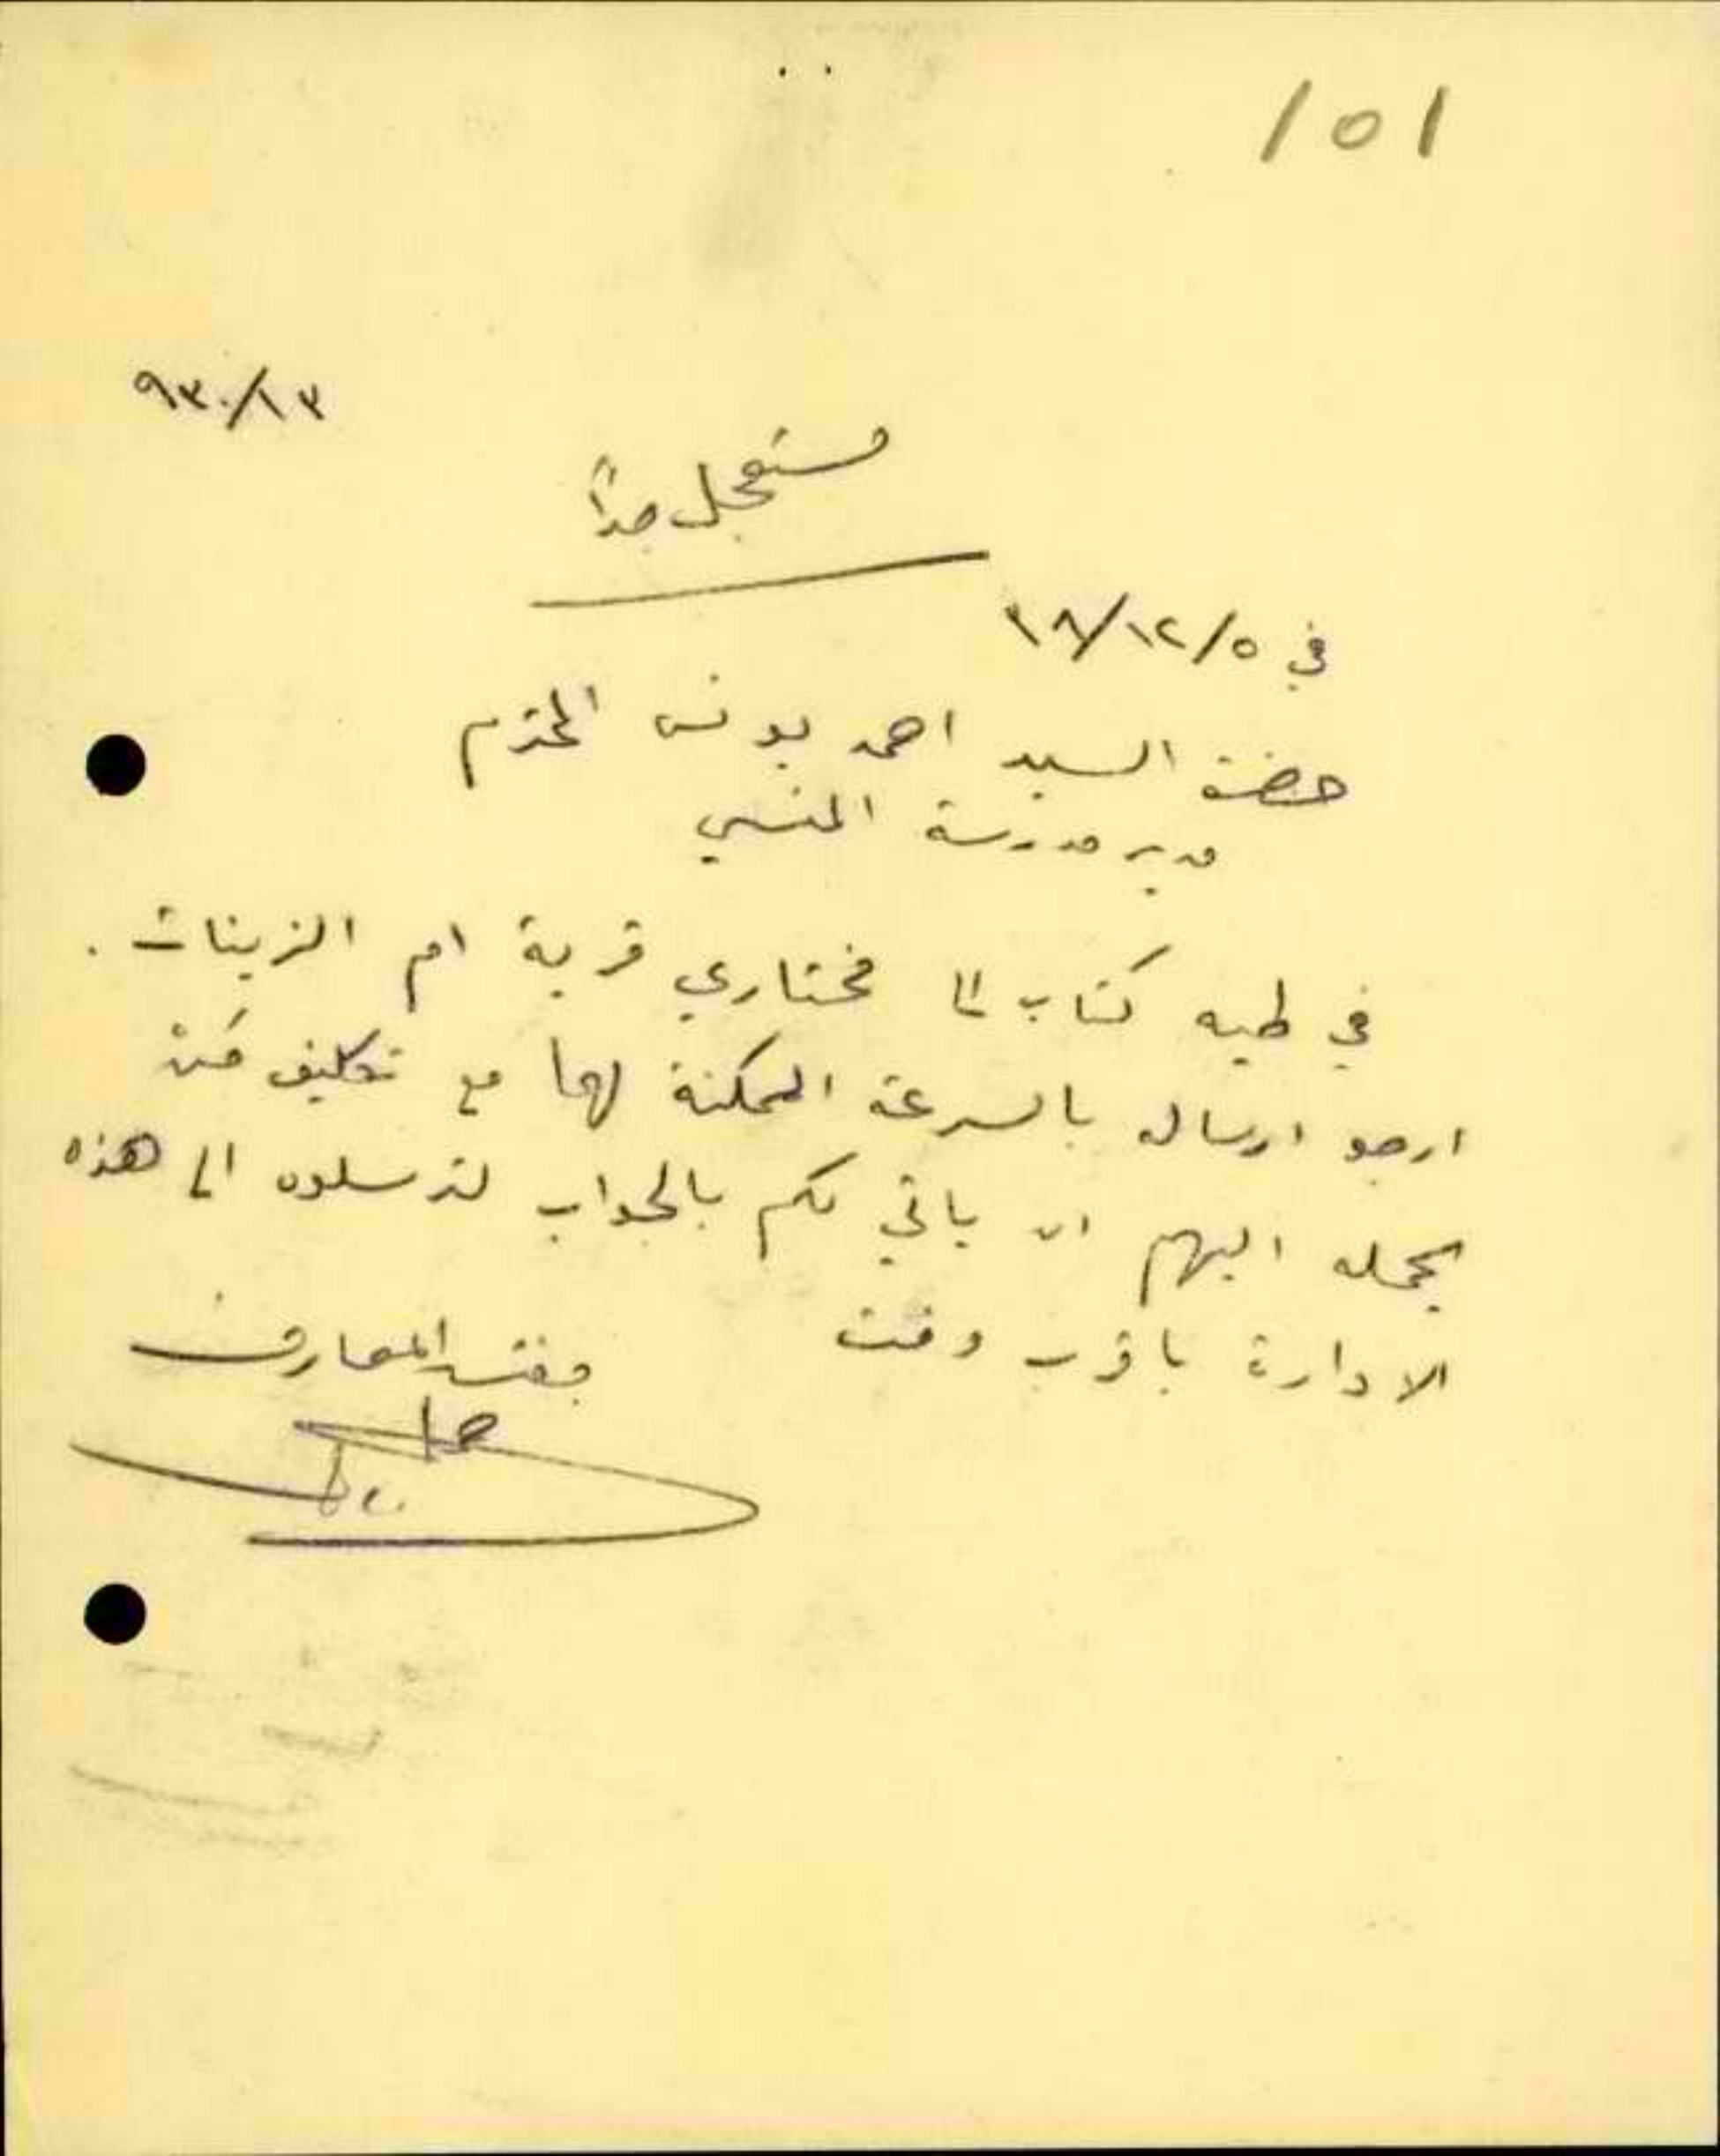 101
٩٣٠/١٣
مستعجل جداً
في ٥/١٢/١٨
حضرة السيد احمد يونس المحترم
مدير مدرسة المنسي
في طيه كتاب الى مختاري قرية ام الزينات .
ارجو ارساله بالسرعة الممكنة لهما مع تكليف مَنْ
يحمله اليهم ان ياتي لكم بالجواب لترسلوه الى هذه
الادارة باقرب وقت
مفتش المعارف